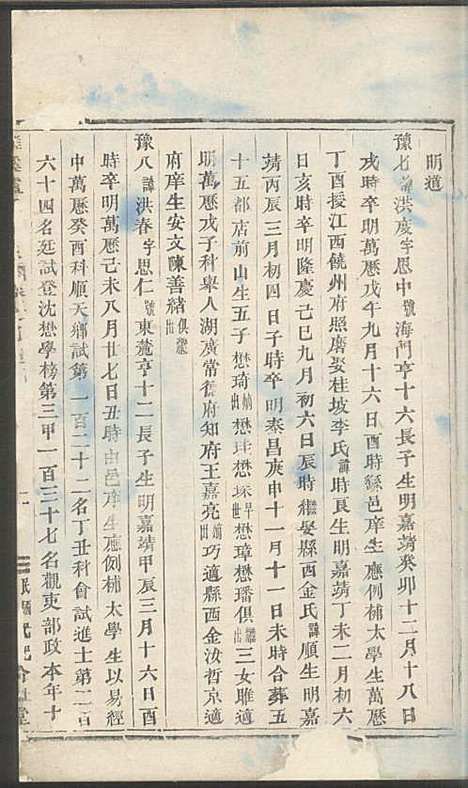 明道
豫七諱洪度字思中號海門亨十六長子生明嘉靖癸卯十二月十八日
戌時卒明萬歷戊午九月十六日酉時縣邑庠生應例補太學生萬歷
丁酉授江西饒州府照磨娶桂坡李氏諱時良生明嘉靖丁未二月初六
日亥時卒明隆慶己巳九月初六日辰時繼娶縣西金氏諱順生明嘉
靖丙辰三月初四日子時卒明泰昌庚申十一月十一日未時合葬五
十五都店前山生五子懋琦出懋珪懋琛早世懋璋懋璠俱繼出三女雎適
明萬歷戊子科舉人湖廣常德府知府王嘉亮出巧適縣西金汝哲京適
府庠生安文陳善緒俱繼出
豫八諱洪春字思仁號東麓亨十二長子生明嘉靖甲辰三月十六日酉
時卒明萬歷己未八月廿七日丑時由邑庠生應例補太學生以易經
中萬歷癸酉科順天鄉試第一百二十二名丁丑科會試進士第二百
六十四名廷試登沈懋學榜第三甲一百三十七名觀吏部政本年十